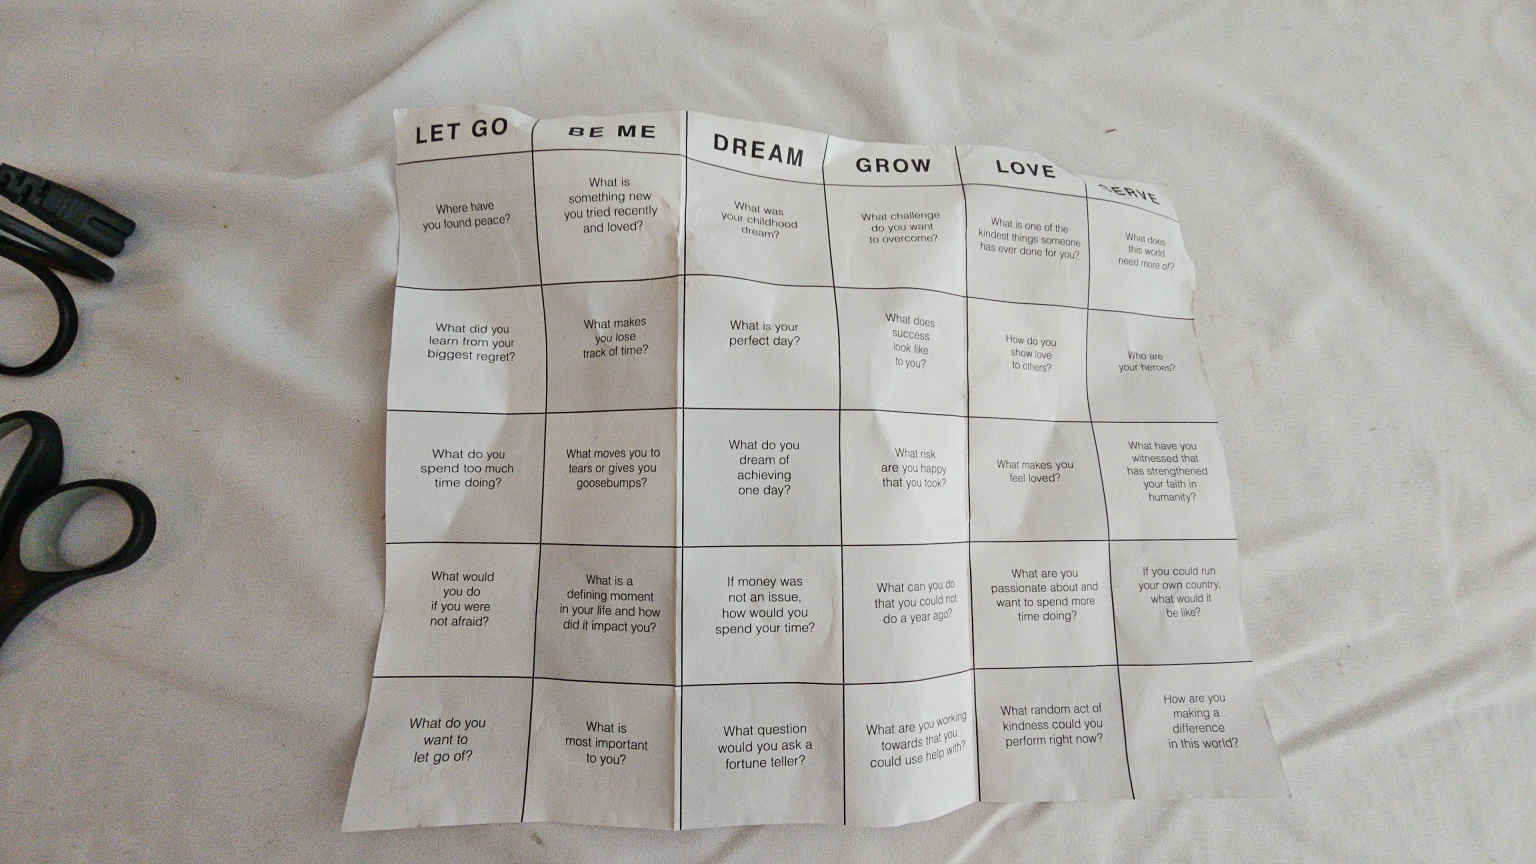 LET GO
BE ME
DREAM
GROW
LOVE
SERVE
Where have
you found peace?
What is
something new
you tried recently
and loved?
What was
your childhood
dream?
What challenge
do you want
to overcome?
What is one of the
kindest things someone
has ever done for you?
What does
this world
need more of?
What did you
learn from your
biggest regret?
What makes
you lose
track of time?
What is your
perfect day?
What does
success
look like
to you?
How do you
show love
to others?
Who are
your heroes?
What do you
spend too much
time doing?
What moves you to
tears or gives you
goosebumps?
What do you
dream of
achieving
one day?
What risk
are you happy
that you took?
What makes you
feel loved?
What have you
witnessed that
has strengthened
your faith in
humanity?
What would
you do
if you were
not afraid?
What is a
defining moment
in your life and how
did it impact you?
If money was
not an issue,
how would you
spend your time?
What can you do
that you could not
do a year ago?
What are you
passionate about and
want to spend more
time doing?
If you could run
your own country,
what would it
be like?
What do you
want to
let go of?
What is
most important
to you?
What question
would you ask a
fortune teller?
What are you working
towards that you
could use help with?
What random act of
kindness could you
perform right now?
How are you
making a
difference
in this world?